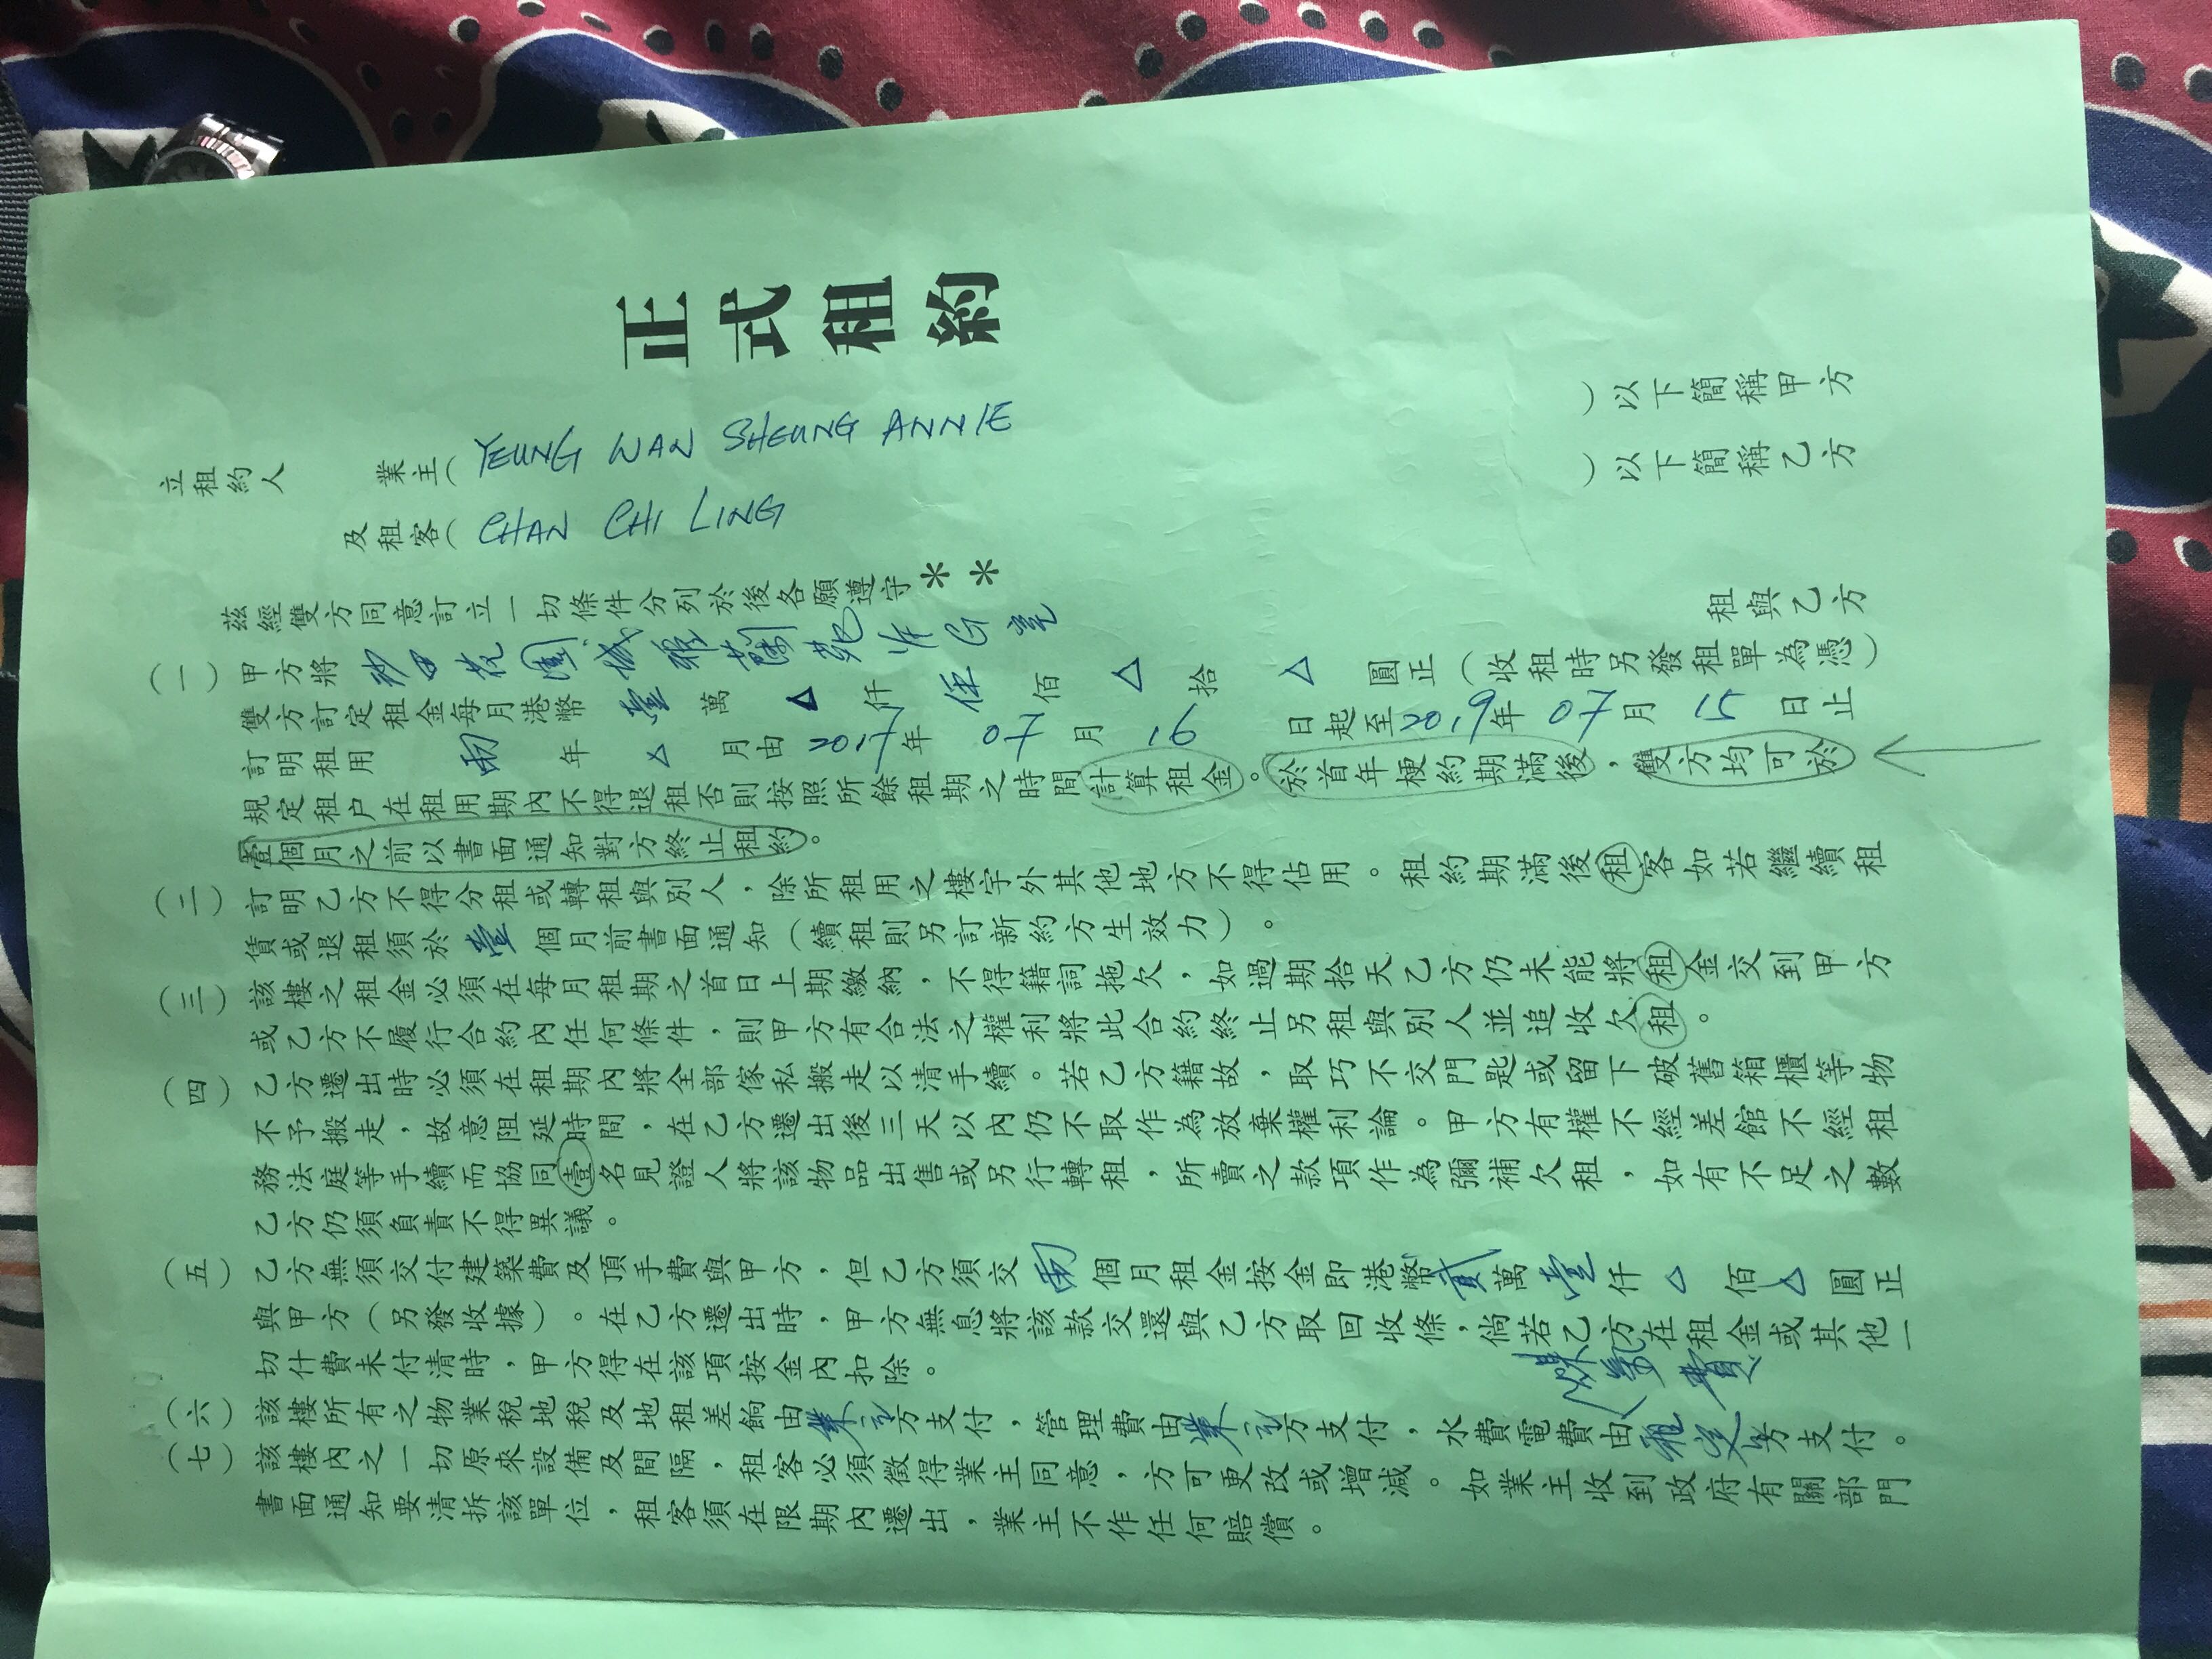 正式租約
立租約人
業主（YEUNG WAN SHEUNG ANNIE ）以下簡稱甲方
及租客（CHAN CHI LING ）以下簡稱乙方
茲經雙方同意訂立一切條件分列於後各願遵守＊＊
（一）甲方將 沙田花園城雅蘭苑 G 租與乙方
雙方訂定租金每月港幣 壹 萬 △ 仟 伍 佰 △ 拾 △ 圓正（收租時另發租單為憑）
訂明租用 兩 年 △ 月由 2017 年 07 月 16 日起至 2019 年 07 月 15 日止
規定租户在租用期內不得退租否則按照所餘租期之時間計算租金。於首年梗約期滿後，雙方均可於
壹個月之前以書面通知對方終止租約。
（二）訂明乙方不得分租或轉租與別人，除所租用之樓宇外其他地方不得佔用。租約期滿後租客如若繼續租
賃或退租須於 壹 個月前書面通知（續租則另訂新約方生效力）。
（三）該樓之租金必須在每月租期之首日上期繳納，不得籍詞拖欠，如過期拾天乙方仍未能將租金交到甲方
或乙方不履行合約內任何條件，則甲方有合法之權利將此合約終止另租與別人並追收欠租。
（四）乙方遷出時必須在租期內將全部傢私搬走以清手續。若乙方籍故，取巧不交門匙或留下破舊箱櫃等物
不予搬走，故意阻延時間，在乙方遷出後三天以內仍不取作為放棄權利論。甲方有權不經差館不經租
務法庭等手續而協同壹名見證人將該物品出售或另行轉租，所賣之款項作為彌補欠租，如有不足之數
乙方仍須負責不得異議。
（五）乙方無須交付建築費及頂手費與甲方，但乙方須交 兩 個月租金按金即港幣 貳 萬 壹 仟 △ 佰 △ 圓正
與甲方（另發收據）。在乙方遷出時，甲方無息將該款交還與乙方取回收條，倘若乙方在租金或其他一
切什費未付清時，甲方得在該項按金內扣除。
煤氣費
（六）該樓所有之物業稅地稅及地租差餉由 業主 方支付，管理費由 業主 方支付，水費電費由 租客 方支付。
（七）該樓內之一切原來設備及間隔，租客必須徵得業主同意，方可更改或增減。如業主收到政府有關部門
書面通知要清拆該單位，租客須在限期內遷出，業主不作任何賠償。